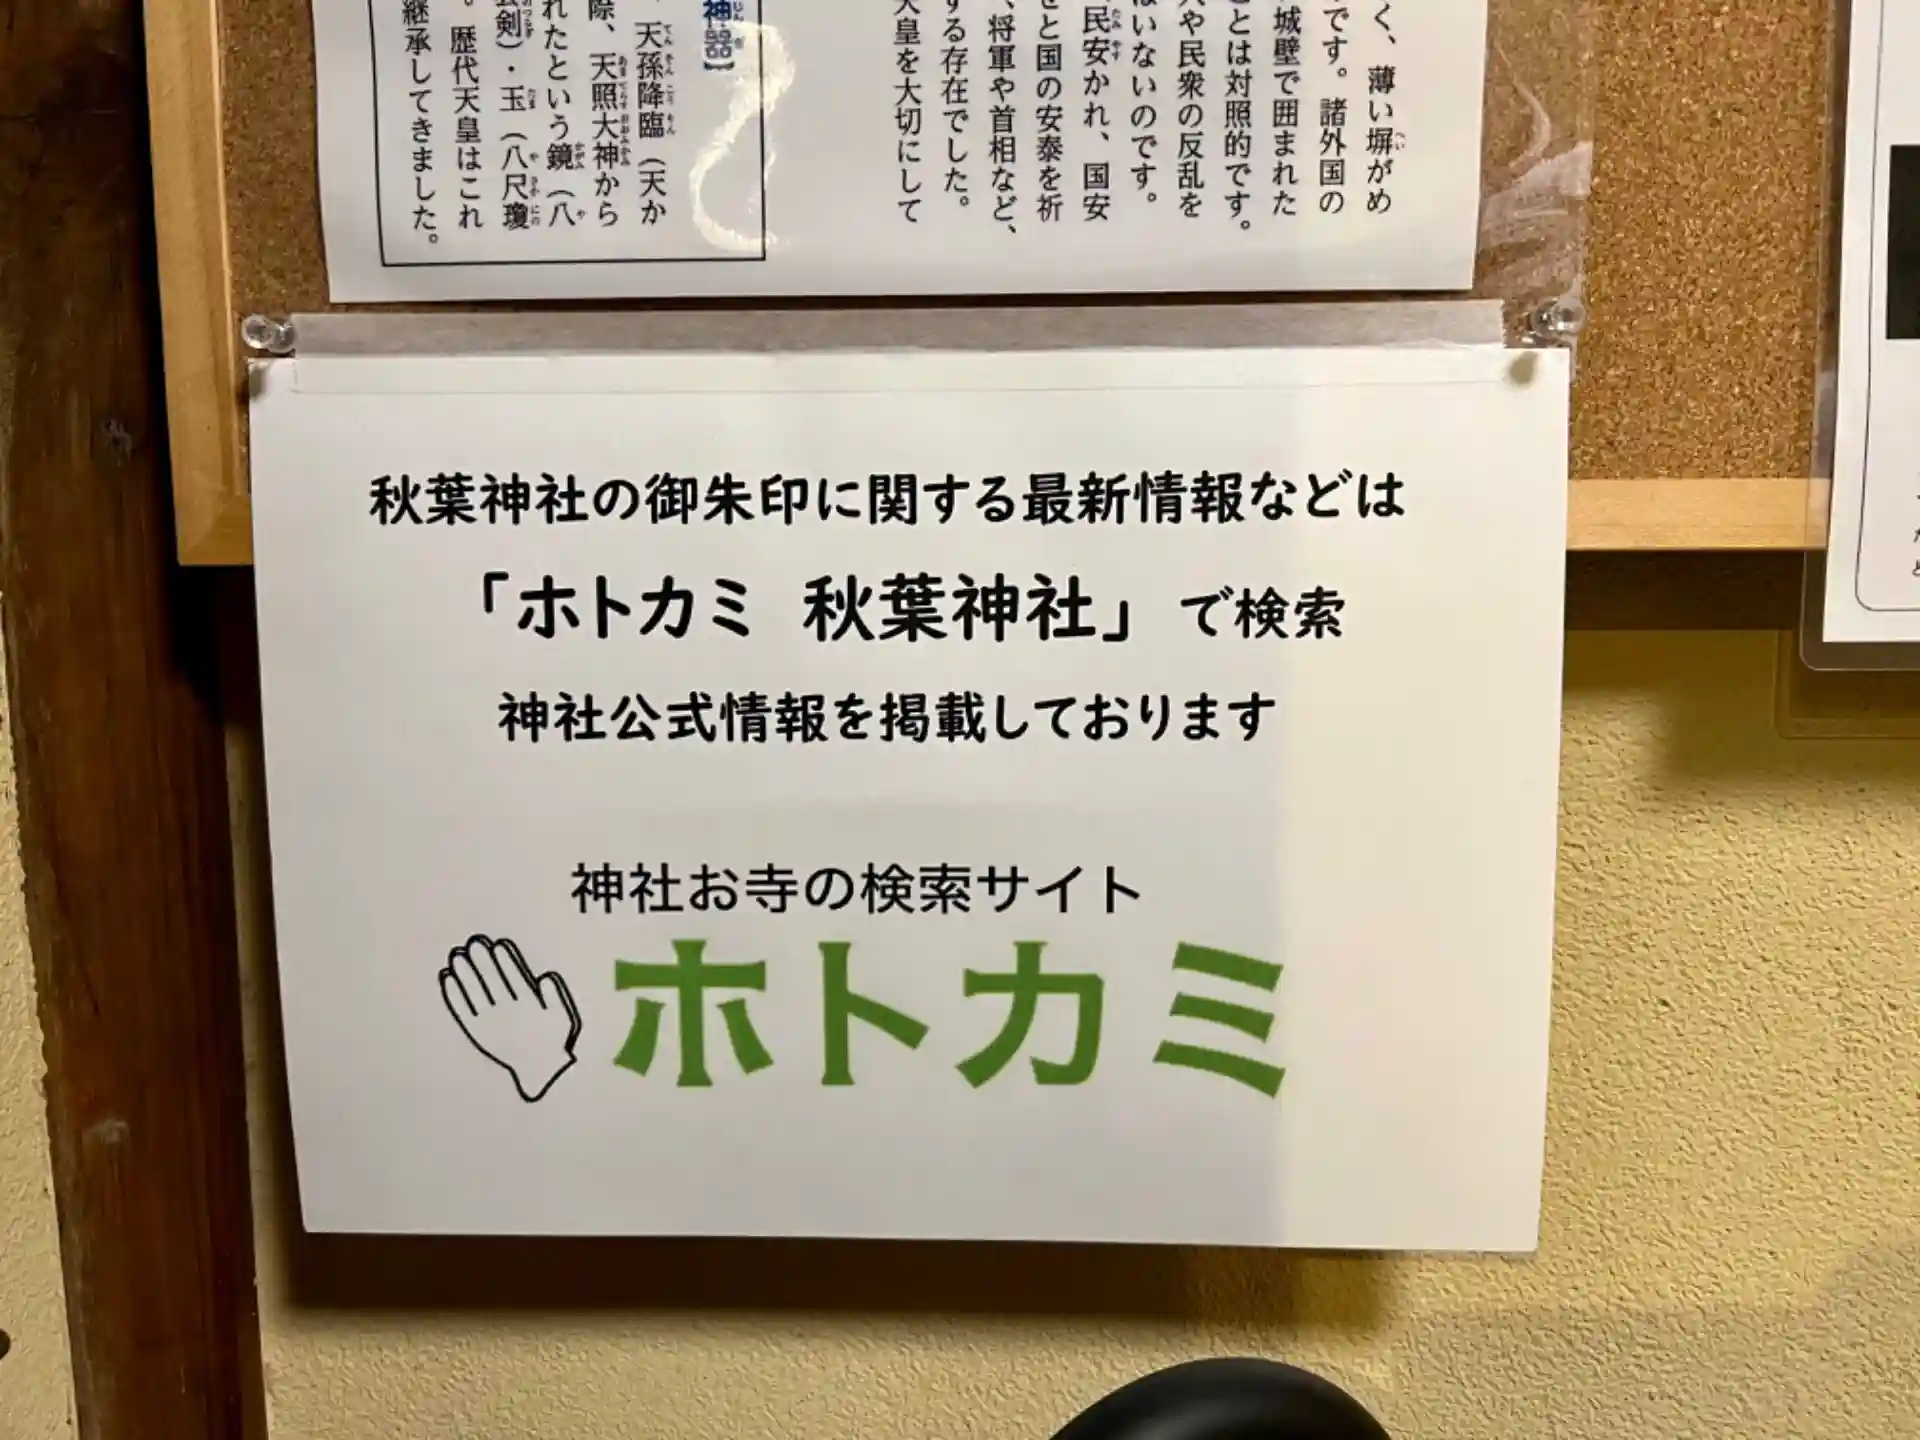 く、薄い塀がめ
です。諸外国の
城壁で囲まれた
とは対照的です。
や民衆の反乱を
はいないのです。
民安かれ、国安
と国の安泰を祈
、将軍や首相など、
する存在でした。
天皇を大切にして
神器】
天孫降臨(天か
際、天照大神から
れたという鏡(八
雲剣)・玉(八尺瓊
。歴代天皇はこれ
継承してきました。
秋葉神社の御朱印に関する最新情報などは
「ホトカミ 秋葉神社」で検索
神社公式情報を掲載しております
神社お寺の検索サイト
ホトカミ